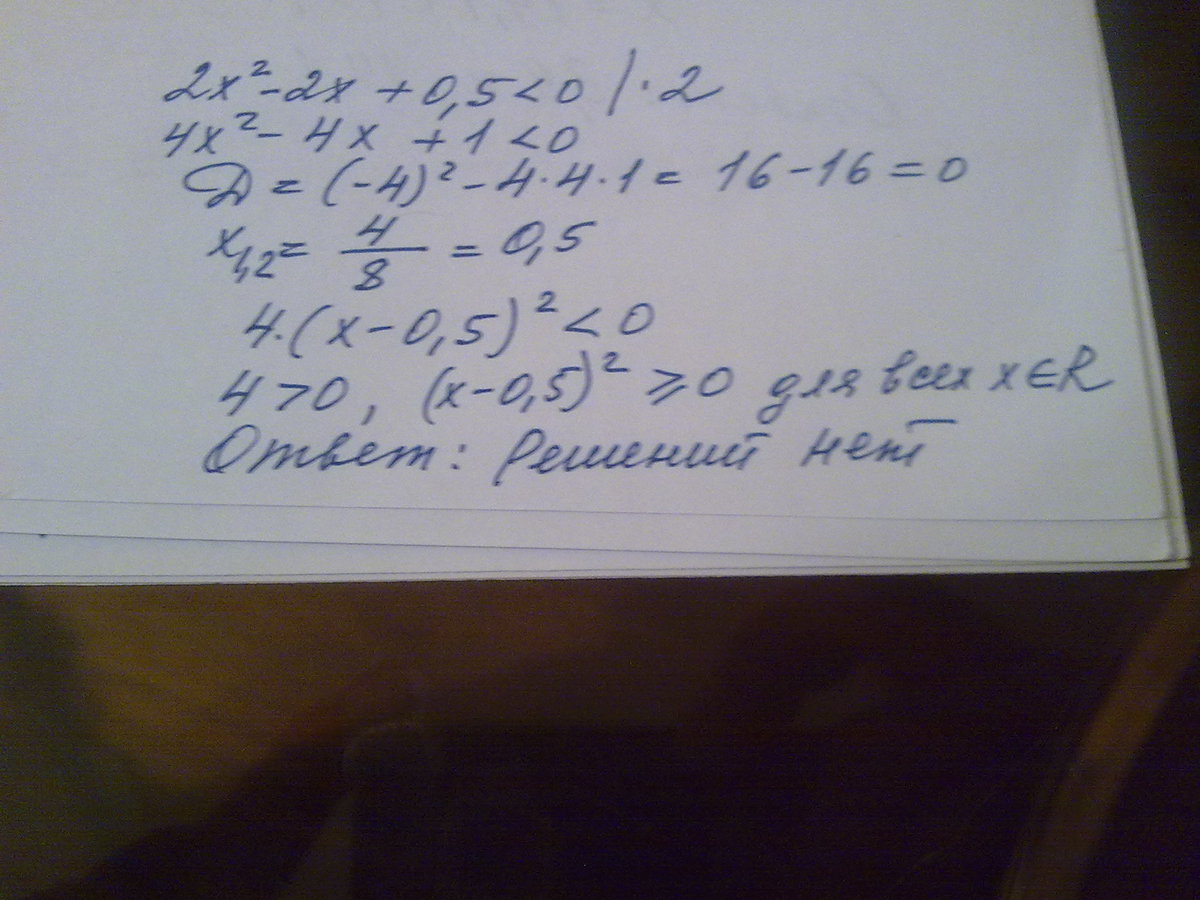 2x² - 2x + 0,5 < 0 / · 2
4x² - 4x + 1 < 0
D = (-4)² - 4·4·1 = 16 - 16 = 0
x₁,₂ = 4/8 = 0,5
4·(x - 0,5)² < 0
4 > 0, (x - 0,5)² ⩾ 0 для всех x ∈ R
Ответ: Решений нет